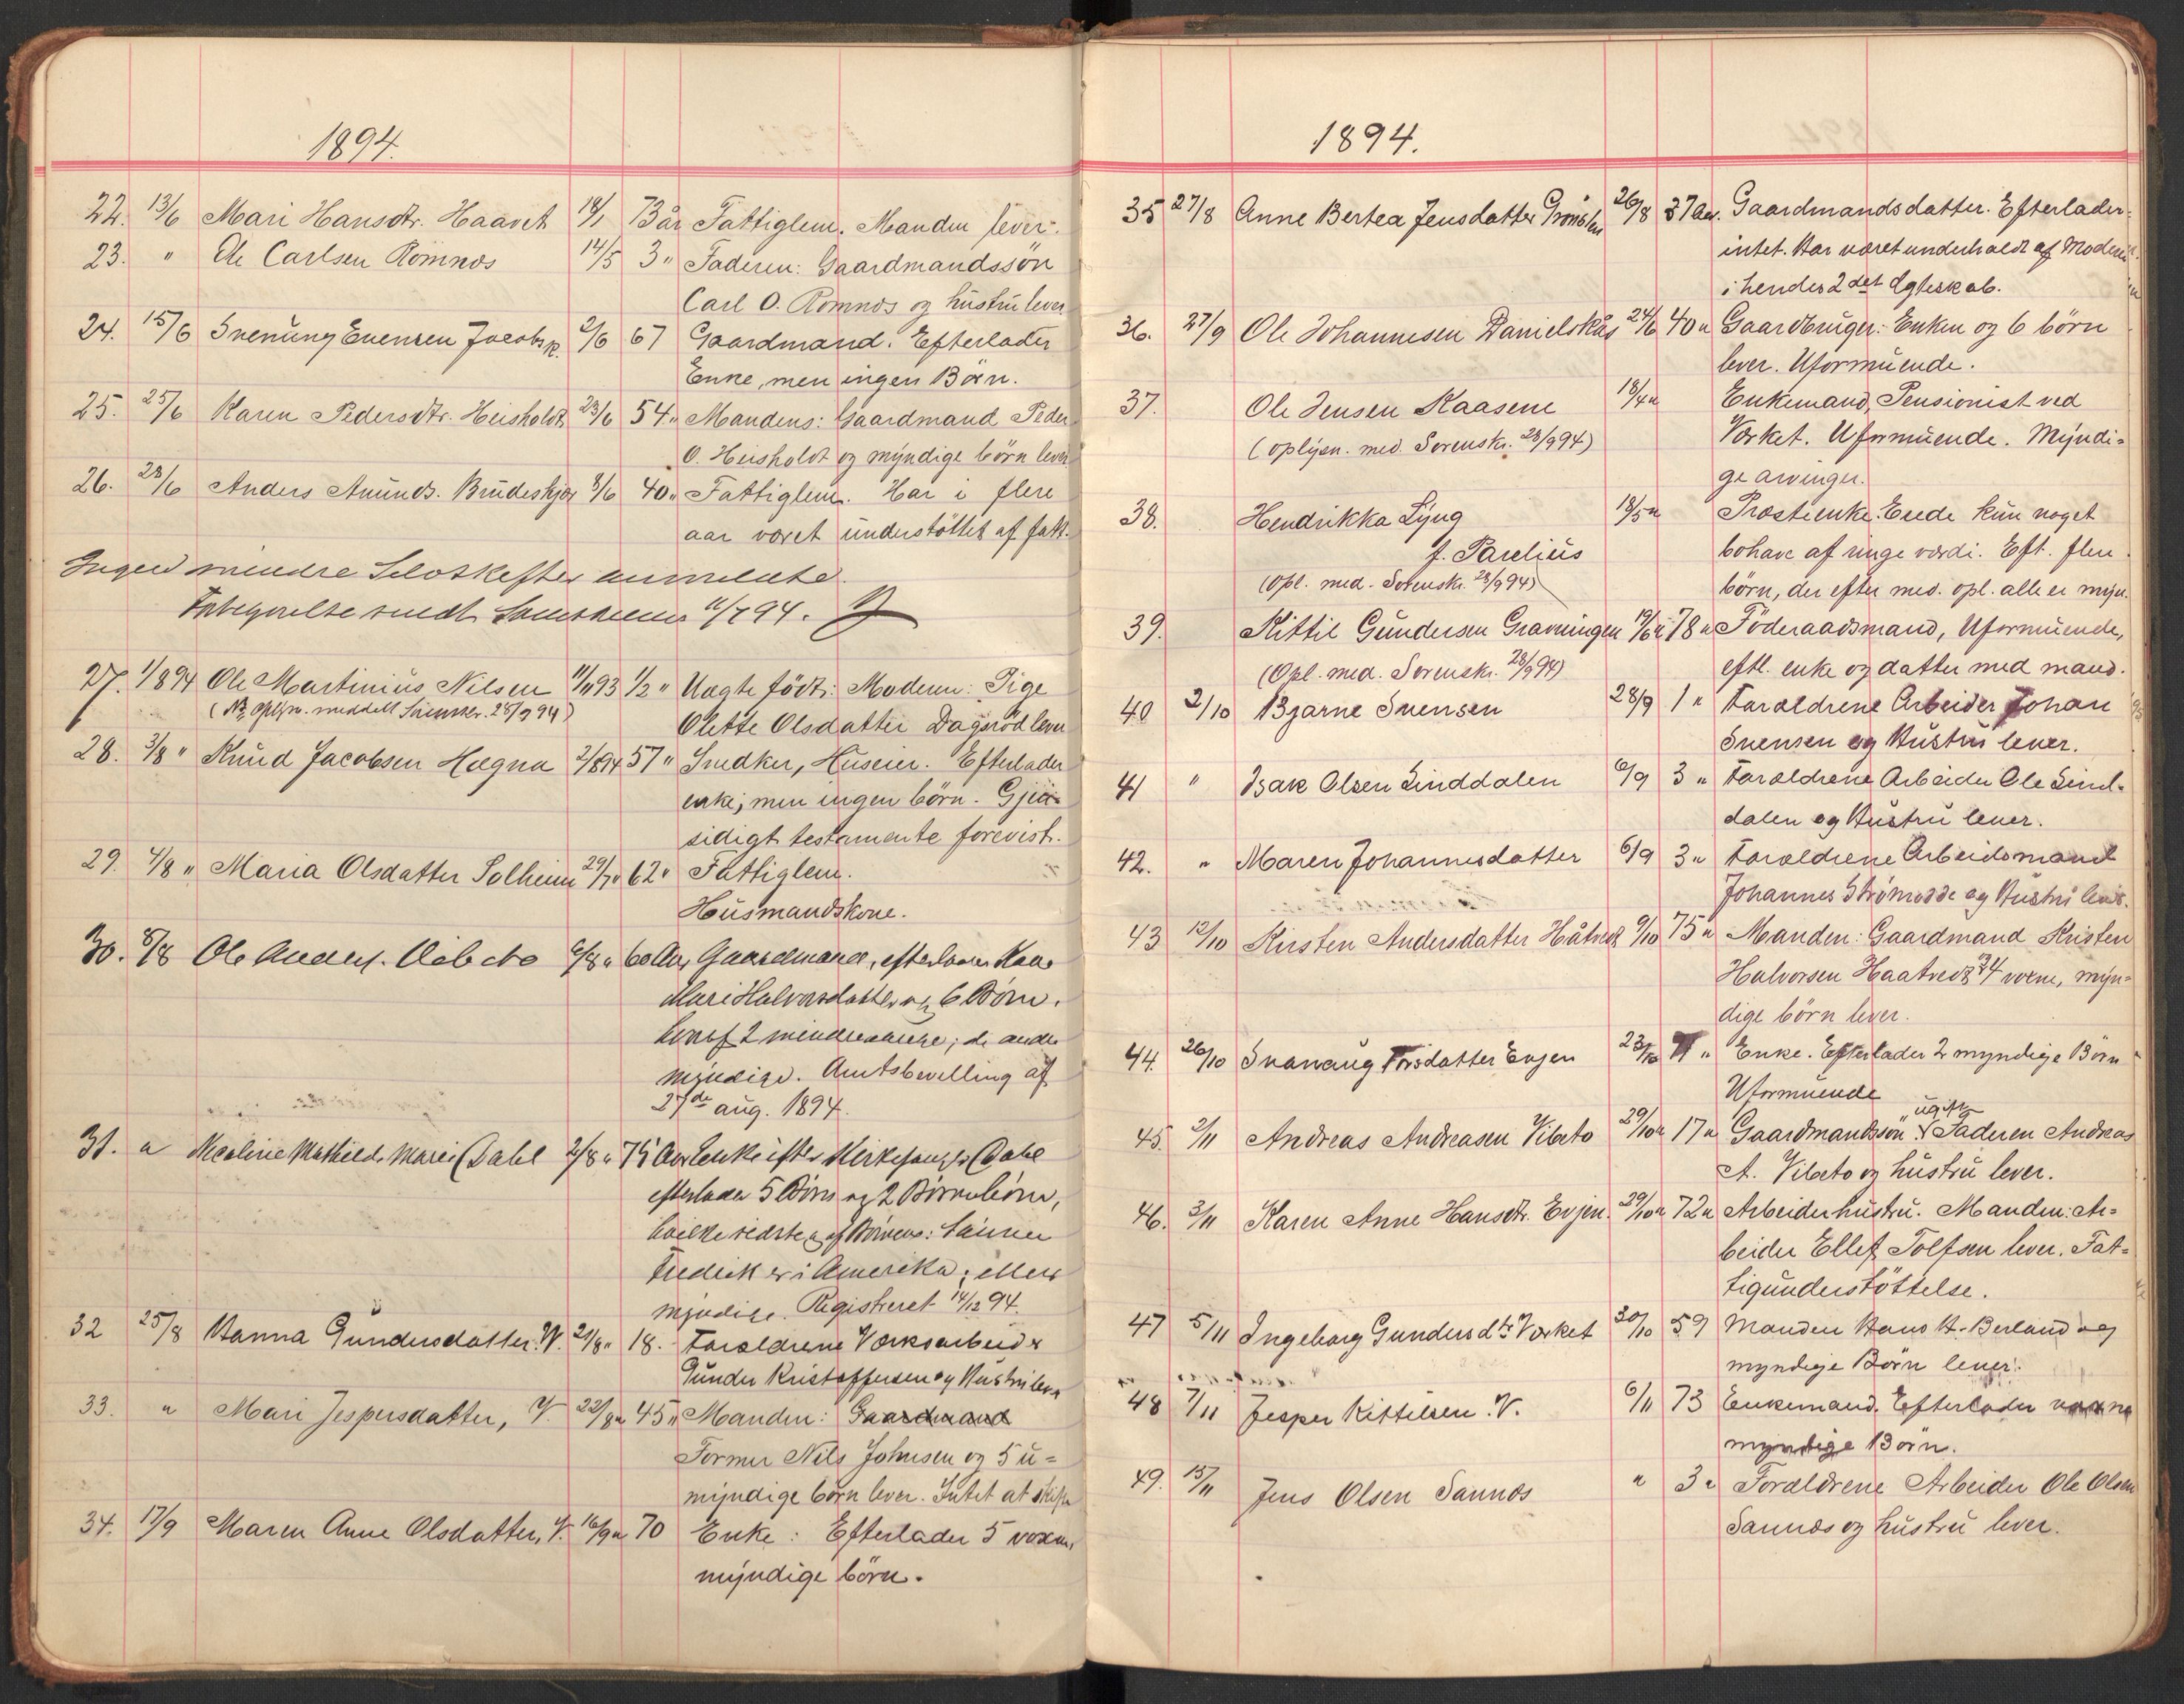 1894.
22. 13/6 Mari Hansdtr. Haavet 18/1 73 år Fattiglem. Manden lever.
23. " Ole Carlsen Romnæs 14/5 3 " Faderen: Gaardmandssön
Carl O. Romnæs og hustru lever
24. 15/6 Svenung Evensen Jacobsk. 2/6 67 Gaardmand. Efterlader
Enke, men ingen Börn.
25. 25/6 Karen Pedersdtr. Heisholdt 23/6 54 " Mandens: Gaardmand Peder
O. Heisholdt og myndige börn lever
26. 28/6 Anders Anunds. Brudeskjær 8/6 40 " Fattiglem. Har i flere
aar været understöttet af fatt.
Ingen mindre
11/7 94.
27. 1/8 94 Ole Martinius Nilsen 11/11 93 1/2 " Uægte födt: Moderen: Pige
(Nb. oplysn. meddelt Sorenskr. 28/9 94)
Olette Olsdatter Dagsröd lever
28. 3/8 " Knud Jacobsen Hægna 2/8 94 57 " Snedker, Huseier. Efterlader
enke; men ingen börn. Gjen-
sidigt testamente forevist.
29. 4/8 " Maria Olsdatter Solheim 29/7 " 62 " Fattiglem.
Husmandskone.
30. 8/8 Ole Anders. Vibeto 6/8 " 60 Aar Gaardmand, efterlader Kone
Mari Halvorsdatter og 6 Börn,
hvoraf 2 mindreaarige; de andre
myndige. Amtsbevilling af
27de aug. 1894.
31. " Mathilde Marie Dahl 2/8 " 75 Aar Enke efter Kirkesanger Dahl
efterlader 5 Börn og 2 Börnebörn,
hvilke sidste
Fredrik er i Amerika; ellers
myndige. Registreret 14/12 94.
32 25/8 Hanna Gundersdatter. V. 21/8 " 18. Forældrene Værksarbeider
Gunder Kristoffersen og Hustru lever
33. " Mari Jespersdatter, V. 22/8 " 45 " Manden: Gaardmand
Former Nils Johnsen og 5 u=
myndige börn lever. Intet at skifte
34. 17/9 Maren Anne Olsdatter, V. 16/9 " 70 Enke: Efterlader 5 voxne,
myndige börn.
1894.
35 27/8 Anne Bertea Jensdatter Grönsten 26/8 37 Aar. Gaardmandsdatter. Efterlader
intet. Har været underholdt af Moderen
i hendes 2det Egteskab.
36. 27/9 Ole Johannesen Danielskås 24/6 40 " Gaardbruger: Enken og 6 börn
lever. Uformuende.
37. Ole Jensen Kaasene 18/4 " Enkemand, Pensionist ved
(oplysn. med. Sorenskr. 28/9 94) Værket. Uformuende. Myndi=
ge arvinger.
38. Hendrikka Lyng 18/5 " Prosteenke. Eiede kun noget
f. Parelius bohave af ringe værdi. Eft. flere
(Opl. med. Sorenskr. 28/9 94) börn, der efter med. opl. alle er myn.
39. Kittil Gundersen Gravningen 19/6 " 78 " Föderaadsmand, Uformuende,
(Opl. med. Sorenskr. 28/9 94) eftl. enke og datter med mand.
40 2/10 Bjarne Svensen 28/9 1 " Forældrene Arbeider Johan
Svensen og Hustru lever.
41 " Isak Olsen Linddalen 6/9 3 " Forældrene Arbeider Ole Lind-
dalen og Hustru lever.
42. " Maren Johannesdatter 6/9 3 " Forældrene Arbeidsmand
Johannes Strömodde og Hustru lever.
43 12/10 Kirsten Andersdatter Håtvedt 9/10 75 " Manden: Gaardmand Kristen
Halvorsen Haatvedt og 4 voxne, myn=
dige börn lever.
44. 26/10 Svanaug Torsdatter Evjen 23/10 " Enke. Efterlader 2 myndige Börn
Uformuende
45. 2/11 Andreas Andreasen Vibeto 29/10 " 17 " Gaardmandssön, ugift. Faderen Andreas
A. Vibeto og hustru lever.
46. 3/11 Karen Anne Hansdtr. Evjen. 29/10 " 72 " Arbeiderhustru. Manden: Ar=
beider Ellef Tolfsen lever. Fat=
tigunderstöttelse.
47 5/11 Ingeborg Gundersdtr Værket 30/10 59 Manden Hans H. Berland og
myndige Börn lever.
48 7/11 Jesper Kittilsen. V. 6/11 73 Enkemand. Efterlader voxne
myndige Börn.
49. 15/11 Jens Olsen Sannæs " 3 " Forældrene Arbeider Ole Olsen
Sannæs og hustru lever.